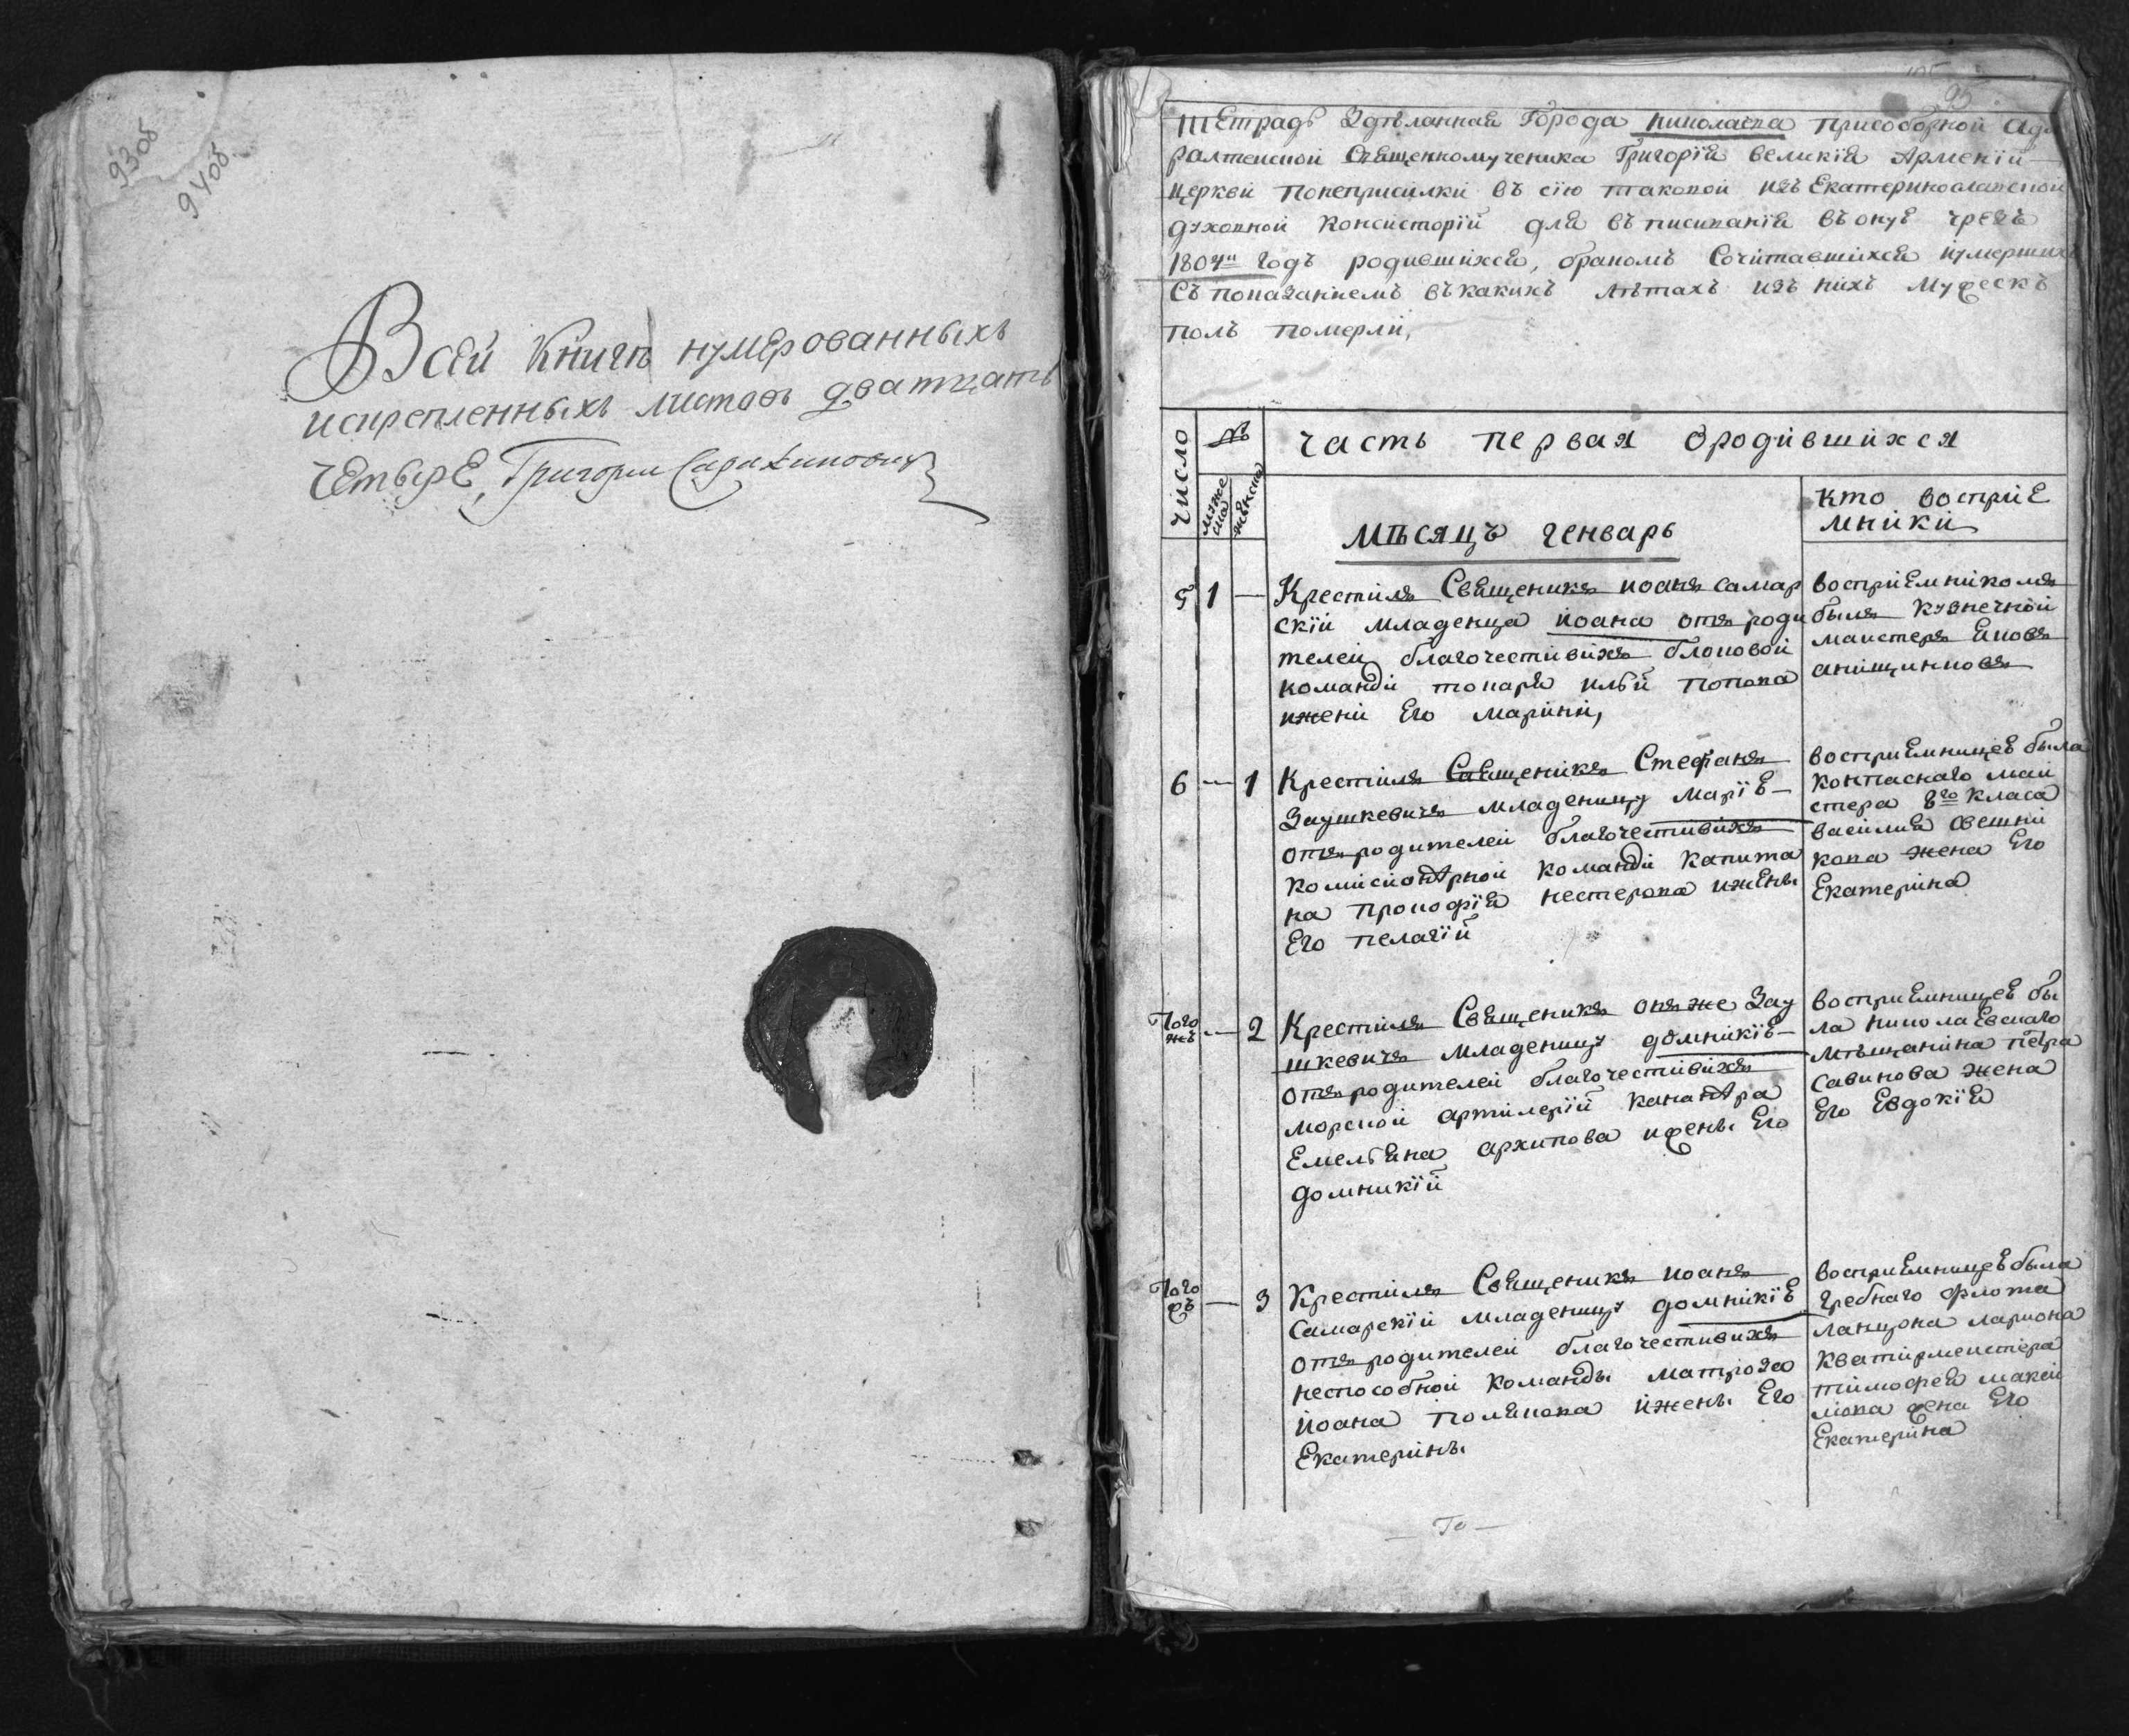 93об
94об
Всей Книгѣ нумерованныхъ
искрепленныхъ листовъ дватцать
четыре, Григорий
95
Тетрадь Здѣланная Города Николаева Присоборной Адми
ралтейской Священномученика Григорія великія Арменіи
церкви Понеприсилки въ сію таковой изъ Екатеринославской
духовной Консисторіи для въписиванія въ онуѣ чрезъ
1804й годъ родившихся, бракомъ Сочитавшихся иумершихъ
Съ показаниемъ въкакихъ лѣтахъ изъ нихъ мужескъ
полъ померли,
число
№
часть первая ородившихся
мужеска
женска
мѣсяцъ генварь
кто восприе
мники
5 1 — Крестилъ Священикъ иоанъ самар
скїй младенца иоана отъ роди
телей благочестивихъ блоковой
команди токаря ильи попова
ижени Его марини,
восприемникомъ
былъ кузнечной
маистеръ яковъ
анищинковъ
6 — 1 Крестилъ Священикъ Стефанъ
Заушкевичъ младеницу марїѣ
отъ родителей благочестивихъ
комисионерной команди капита
на прокофїя нестерова ижены
Его пелагїй
восприемницеѣ была
компаснаго маи
стера 8го класа
василия овешни
кова жена Его
Екатерина
Того
жъ — 2 Крестилъ Священикъ онъ же Зау
шкевичъ младеницу домникїѣ
отъ родителей благочестивихъ
морской артилерїй канонера
Емельяна архипова ижены Его
домникїй
восприемницеѣ бы
ла николаевскаго
мѣщанина петра
савинова жена
Его Евдокїя
Того
жъ — 3 Крестилъ Священикъ иоанъ
Самарскїй младеницу домникїѣ
отъ родителей благочестивихъ
неспособной команды матроза
иоана полякова ижены Его
Екатерины
восприемницеѣ была
гребнаго флота
лансона лариона
кватирмеистера
тимофея макси
мова жена Его
Екатерина
— То —